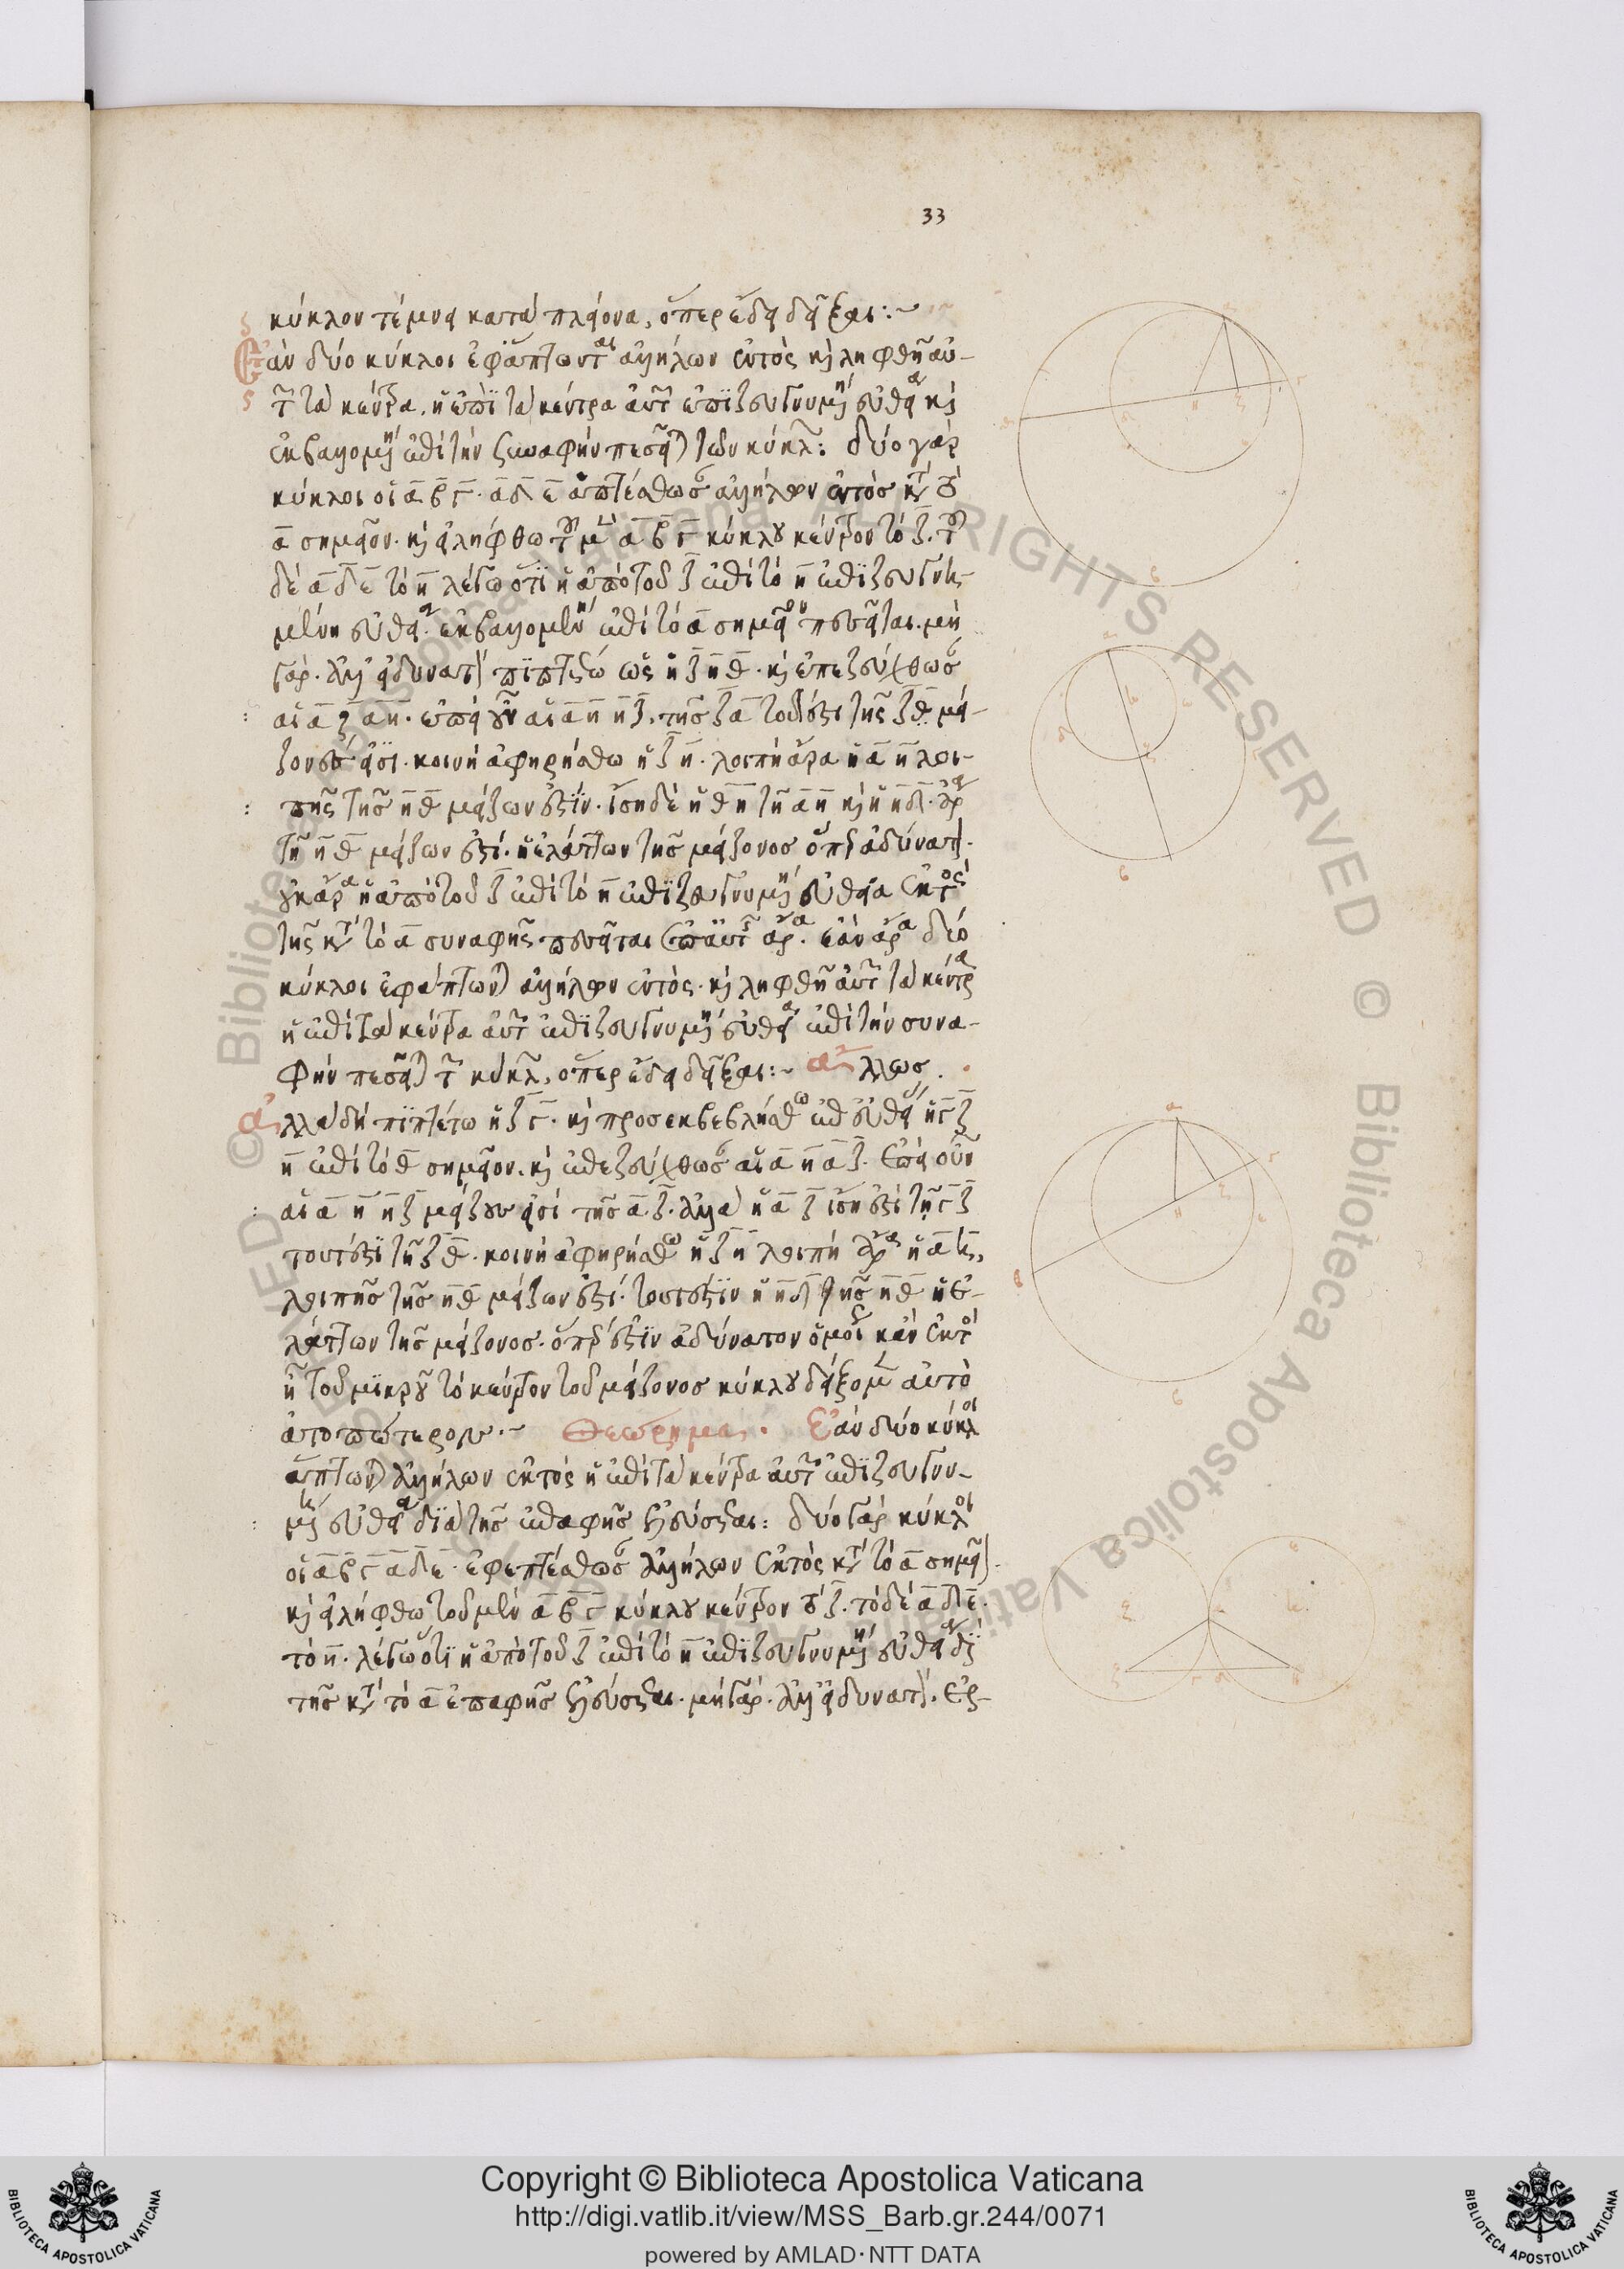 33
κύκλον τέμνει κατὰ πλείονα, ὅπερ ἔδει δεῖξαι:~
Ἐὰν δύο κύκλοι ἐφάπτωνται ἀλλήλων ἐντὸς καὶ ληφθῆ αὐ-
τῶν τὰ κέντρα, ἡ ἐπὶ τὰ κέντρα αὐτῶν ἐπιζευγνυμένη εὐθεῖα καὶ
ἐκβαλλομένη ἐπὶ τὴν συναφὴν πεσεῖται τῶν κύκλων: δύο γὰρ
κύκλοι οἱ α β γ · α δ ε ἁπτέσθωσαν ἀλλήλων ἐντὸς κατὰ τὸ
α σημεῖον · καὶ εἰλήφθω τοῦ μὲν α β γ κύκλου κέντρον τὸ ζ · τοῦ
δὲ α δ ε τὸ η λέγω ὅτι ἡ ἀπὸ τοῦ ζ ἐπὶ τὸ η ἐπιζευγνυ-
μένη εὐθεῖα · ἐκβαλλομένη ἐπὶ τὸ α σημεῖον πεσεῖται · μὴ
γάρ · ἀλλ' εἰ δυνατὸν πιπτέτω ὡς ἡ ζ η θ · καὶ ἐπεζεύχθωσαν
αἱ α ζ α η · ἐπεὶ οὖν αἱ α η η ζ · τῆς ζ α τουτέστι τῆς ζ θ μεί-
ζονές εἰσι · κοινὴ ἀφηρήσθω ἡ ζ η · λοιπὴ ἄρα ἡ α η λοι-
πῆς τῆς η θ μείζων ἐστίν · ἴση δὲ ἡ α η τῆ η δ καὶ ἡ η δ · ἄρα
τῆς η θ μείζων ἐστί · ἡ ἐλάττων τῆς μείζονος ὅπερ ἀδύνατον ·
οὐκ ἄρα ἡ ἀπὸ τοῦ ζ ἐπὶ τὸ η ἐπιζευγνυμένη εὐθεῖα ἐκτὸς
τῆς κατὰ τὸ α συναφῆς πεσεῖται ἐπ' αὐτῆς ἄρα · ἐὰν ἄρα δύο
κύκλοι ἐφάπτωνται ἀλλήλων ἐντὸς · καὶ ληφθῆ αὐτῶν τὰ κέντρα
ἡ ἐπὶ τὰ κέντρα αὐτῶν ἐπιζευγνυμένη εὐθεῖα ἐπὶ τὴν συνα-
φὴν πεσεῖται τῶν κύκλων, ὅπερ ἔδει δεῖξαι:~ ἄλλως .
ἀλλὰ δὴ πιπτέτω ἡ ζ γ · καὶ προσεκβεβλήσθω ἐπ' εὐθείας ἡ γ ζ
η ἐπὶ τὸ θ σημεῖον · καὶ ἐπεζεύχθωσαν αἱ α η α ζ · ἐπεὶ οὖν
αἱ α η η ζ μείζους εἰσὶ τῆς α ζ · ἀλλὰ ἡ α ζ ἴση ἐστὶ τῆ γ ζ
τουτέστι τῆ ζ θ · κοινὴ ἀφηρήσθω ἡ ζ η λοιπὴ ἄρα ἡ α η,
λοιπῆς τῆς η θ μείζων ἐστί · τουτέστιν ἡ η δ τῆς η θ ἡ ἐ-
λάττων τῆς μείζονος · ὅπερ ἐστὶν ἀδύνατον ὁμοίως κἂν ἐκτὸς
ἦ τοῦ μικροῦ τὸ κέντρον τοῦ μείζονος κύκλου δείξομεν αὐτὸ
ἀτοπώτερον ·~ Θεώρημα · Ἐὰν δύο κύκλοι
ἅπτωνται ἀλλήλων ἐκτὸς ἡ ἐπὶ τὰ κέντρα αὐτῶν ἐπιζευγνυ-
μένη εὐθεῖα διὰ τῆς ἐπαφῆς ἐλεύσεται: δύο γὰρ κύκλοι
οἱ α β γ α δ ε · ἐφαπτέσθωσαν ἀλλήλων ἐκτὸς κατὰ τὸ α σημεῖον ·
καὶ εἰλήφθω τοῦ μὲν α β γ κύκλου κέντρον τὸ ζ · τὸ δὲ α δ ε ·
τὸ η · λέγω ὅτι ἡ ἀπὸ τοῦ ζ ἐπὶ τὸ η ἐπιζευγνυμένη εὐθεῖα διὰ
τῆς κατὰ τὸ α ἐπαφῆς ἐλεύσεται · μὴ γάρ · ἀλλ' εἰ δυνατὸν · ἐρ-
© Biblioteca Apostolica Vaticana ALL RIGHTS RESERVED
Copyright © Biblioteca Apostolica Vaticana
http://digi.vatlib.it/view/MSS_Barb.gr.244/0071
powered by AMLAD·NTT DATA
BIBLIOTECA APOSTOLICA VATICANA
BIBLIOTECA APOSTOLICA VATICANA